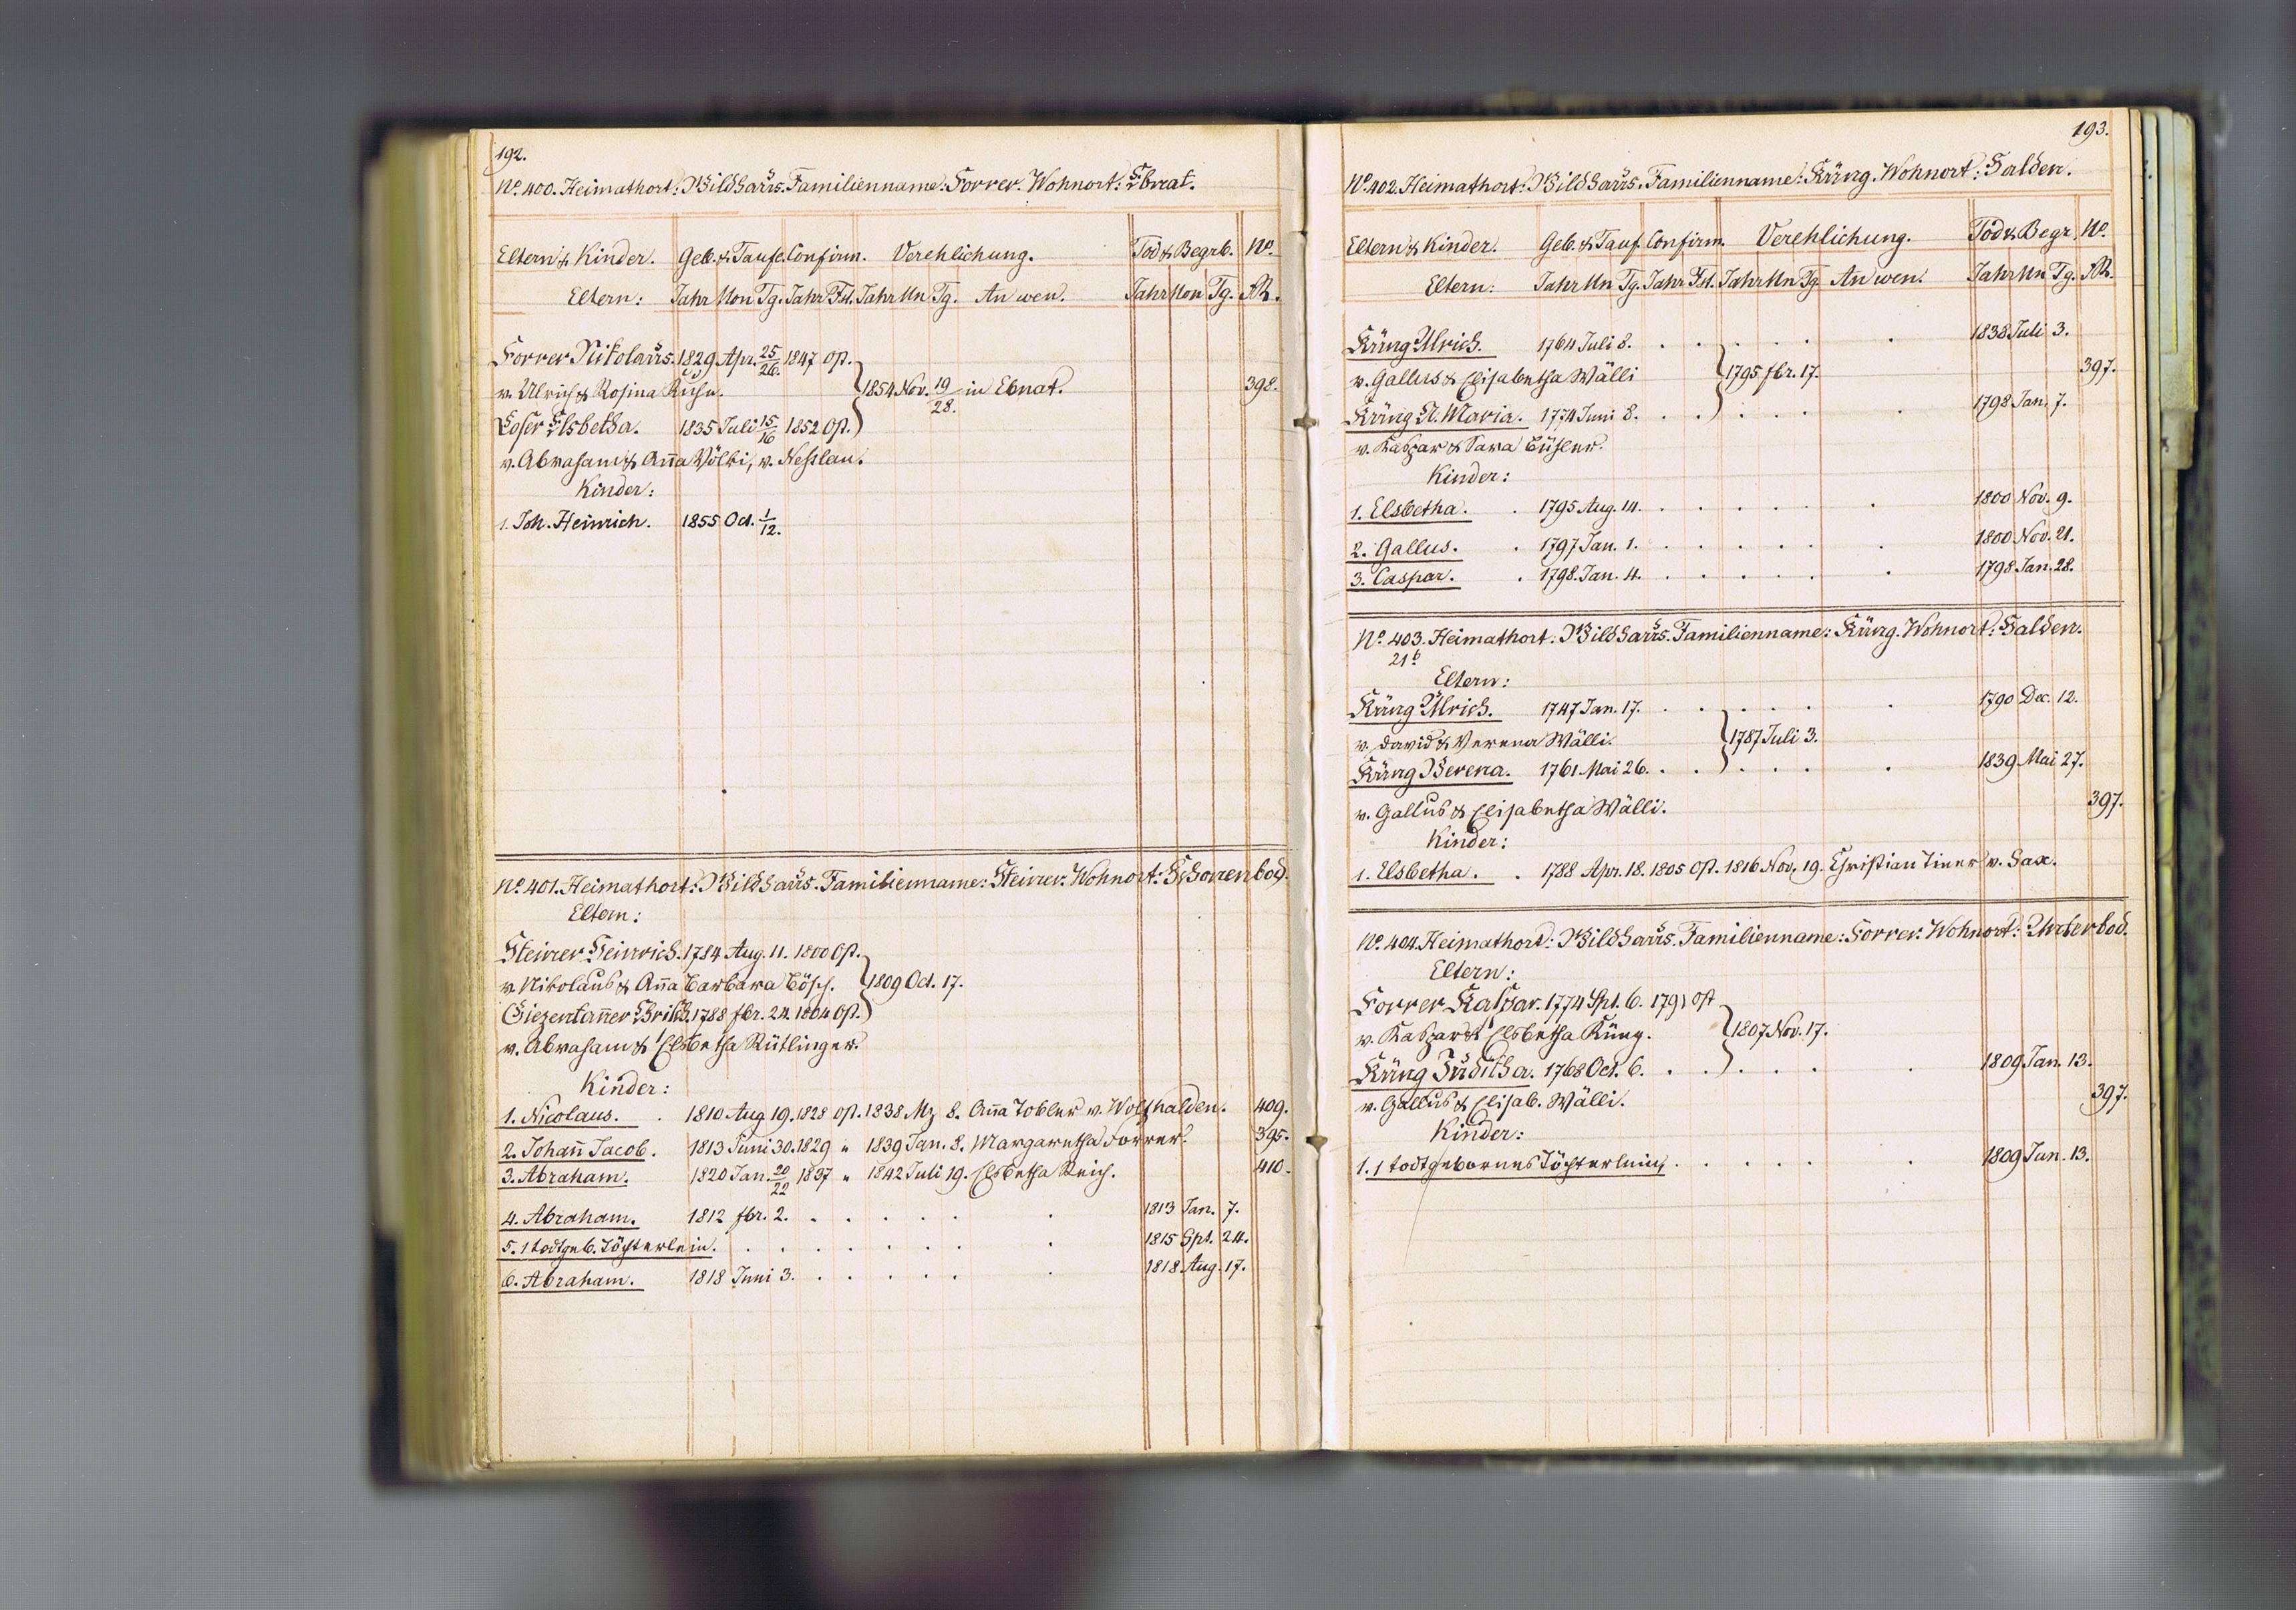 192.
No. 400. Heimathort: Wildhaus. Familienname: Forrer. Wohnort: Ebnat.
Eltern & Kinder. Geb. & Taufe. Confirm. Verehlichung. Tod & Begrb. No.
Eltern: Jahr Mon Tg. Jahr Fst. Jahr Mn Tg. An wen. Jahr Mon Tg. R.
Forrer Nikolaus. 1829 Apr. 25/26. 1847 Ost.
v. Ulrich & Rosina Kuhn. 1854 Nov. 19/28. in Ebnat. 398.
Loser Elsbetha. 1835 Juli 15/16 1852 Ost.
v. Abraham & Anna Völki, v. Nesslau.
Kinder:
1. Joh. Heinrich. 1855 Oct. 1/12.
No. 401. Heimathort: Wildhaus. Familienname: Steiner. Wohnort: Schonenbod.
Eltern:
Steiner Heinrich. 1784 Aug. 11. 1800 Ost.
v. Nikolaus & Anna Barbara Bösch. 1809 Oct. 17.
Giezentanner 1788 fbr. 24. 1804 Ost.
v. Abraham & Elsbetha Rütlinger.
Kinder:
1. Nicolaus. 1810 Aug 19. 1828 Ost. 1838 Mz 8. Anna Tobler v. Wolfhalden. 409.
2. Johann Jacob. 1813 Juni 30. 1829 " 1839 Jan. 8. Margaretha Forrer. 395.
3. Abraham. 1820 Jan. 20/22 1837 " 1842 Juli 19. Elsbetha Reich. 410.
4. Abraham. 1812 fbr. 2. 1813 Jan. 7.
5. 1 todtgeb. Töchterlein. 1815 Spt. 24.
6. Abraham. 1818 Juni 3. 1818 Aug. 17.
193.
No. 402. Heimathort: Wildhaus. Familienname: Küng. Wohnort: Halden.
Eltern & Kinder. Geb. & Tauf. Confirm. Verehlichung. Tod & Begr. No.
Eltern: Jahr Mn Tg. Jahr Fst. Jahr Mn Tg. An wen. Jahr Mn Tg. R.
Küng Ulrich. 1764 Juli 8. 1838 Juli 3.
v. Gallus & Elisabetha Wälli 1795 fbr. 17. 397.
Küng A. Maria. 1774 Juni 8. 1798 Jan. 7.
v. Kaspar & Sara Bühler.
Kinder:
1. Elsbetha. 1795 Aug. 14. 1800 Nov. 9.
2. Gallus. 1797 Jan. 1. 1800 Nov. 21.
3. Caspar. 1798 Jan. 4. 1798 Jan. 28.
No. 403. Heimathort: Wildhaus. Familienname: Küng. Wohnort: Halden.
21b
Eltern:
Küng Ulrich. 1747 Jan. 17. 1790 Dec. 12.
v. David & Verena Wälli. 1787 Juli 3.
Küng Verena. 1761 Mai 26. 1839 Mai 27.
v. Gallus & Elisabetha Wälli. 397.
Kinder:
1. Elsbetha. 1788 Apr. 18. 1805 Ost. 1816 Nov. 19. Christian Tiner v. Sax.
No. 404. Heimathort: Wildhaus. Familienname: Forrer. Wohnort: Unterbod.
Eltern:
Forrer Kaspar. 1774 Spt. 6. 1791 Ost
v. Kaspar & Elsbetha Küng. 1807 Nov. 17.
Küng Juditha. 1768 Oct. 6. 1809 Jan. 13.
v. Gallus & Elisab. Wälli. 397.
Kinder:
1. 1 todtgebornes Töchterlein. 1809 Jan. 13.